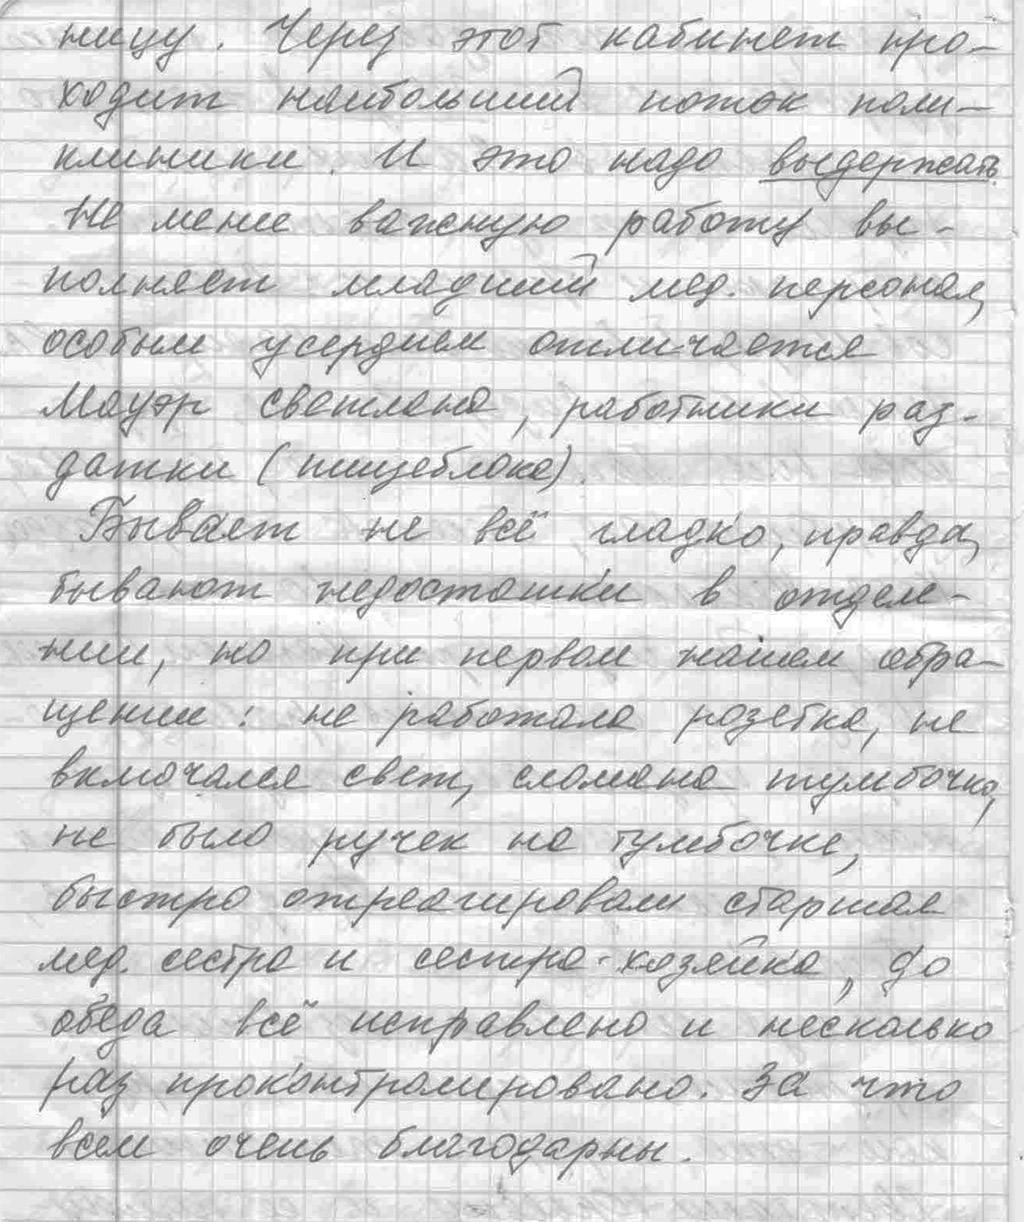 ницу. Через этот кабинет про-
ходит наибольший поток поли-
клиники. И это надо выдержать.
Не менее важную работу вы-
полняет младший мед. персонал,
особым усердием отличается
Мауэр Светлана, работники раз-
датки (пищеблока).
Бывает не всё гладко, правда,
бывают недосташки в отделе-
нии, но при первом нашем обра-
щении: не работала розетка, не
включался свет, сломана тумбочка,
не было ручек на тумбочке,
быстро отреагировали старшая
мед. сестра и сестра-хозяйка, до
обеда всё исправлено и несколько
раз проконтролировано. За что
всем очень благодарны.